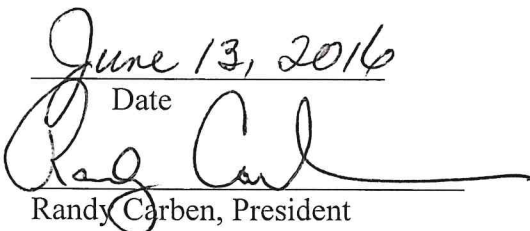 June 13, 2016
Date
Randy Carl
Randy Carben, President